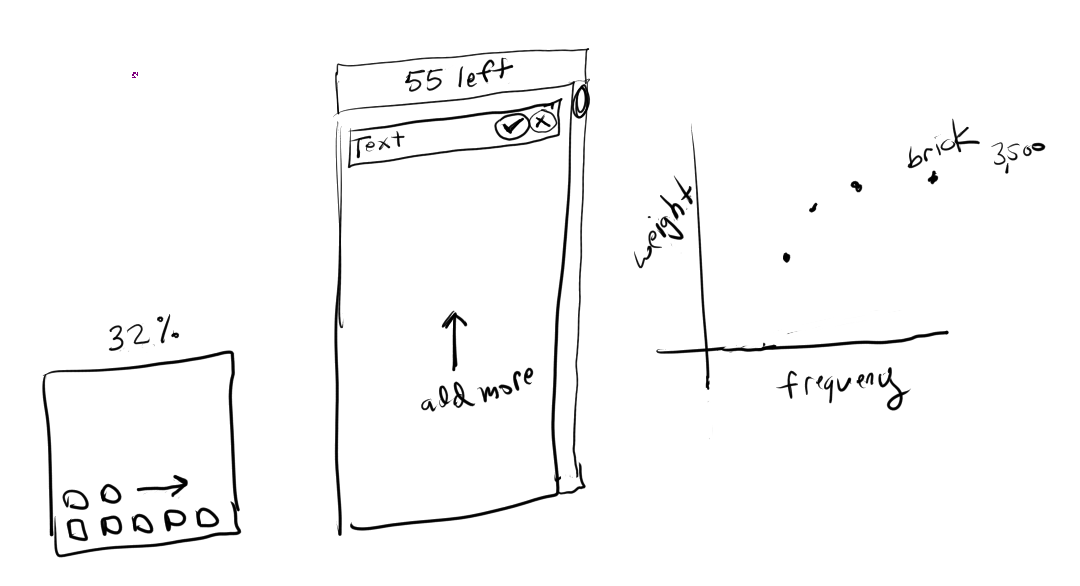 32%
55 left
Text
add more
weight
brick 3,500
frequency